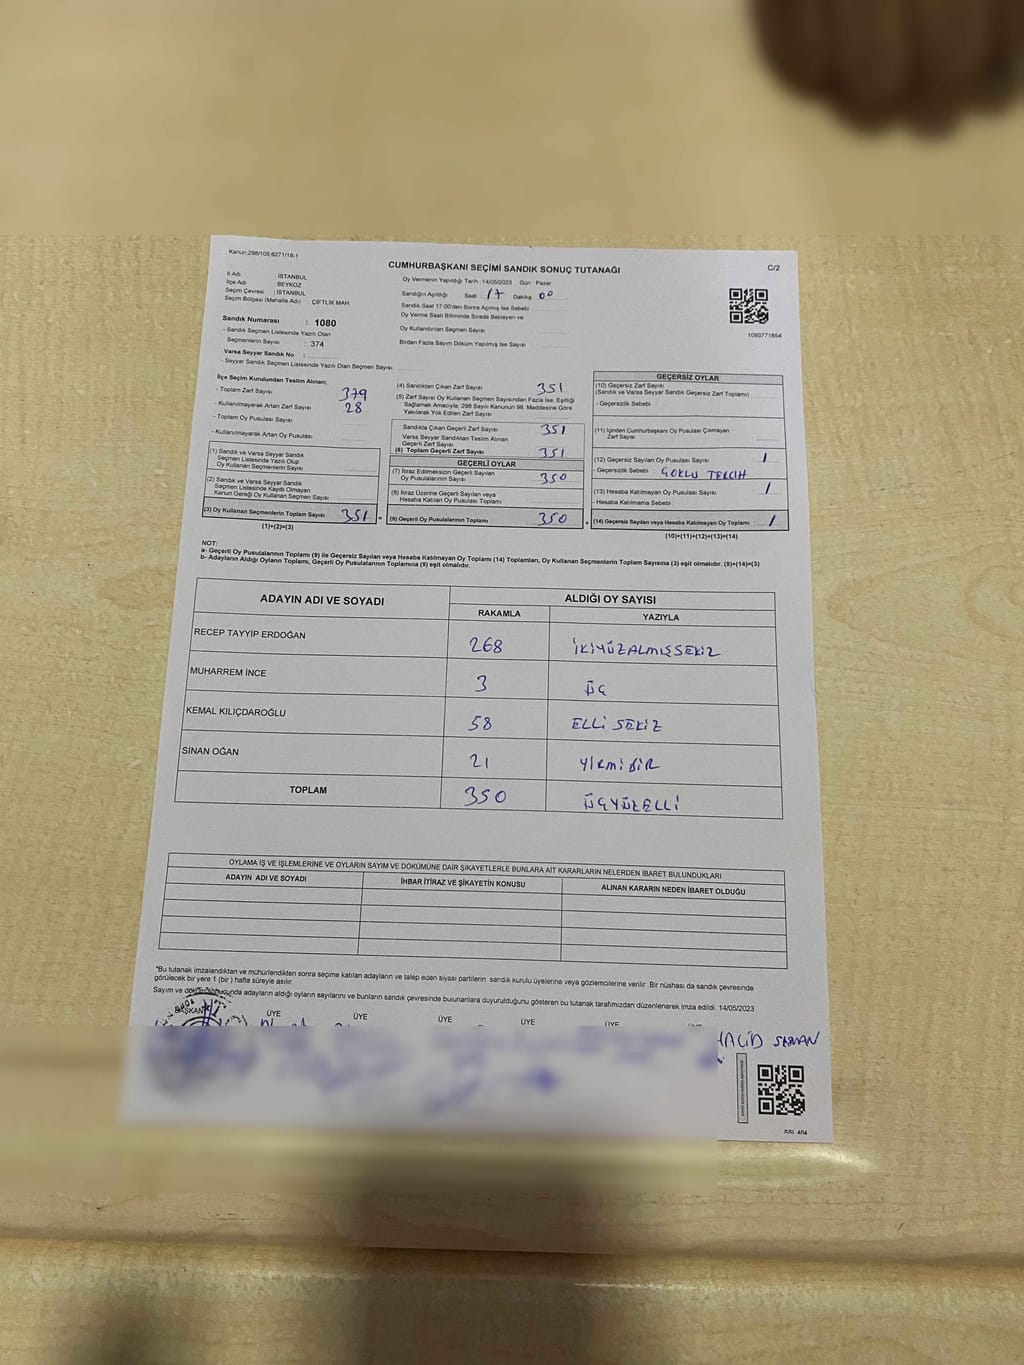 Kanun:298/105,6271/18-1
CUMHURBAŞKANI SEÇİMİ SANDIK SONUÇ TUTANAĞI
C/2
İl Adı : İSTANBUL
İlçe Adı : BEYKOZ
Seçim Çevresi : İSTANBUL
Seçim Bölgesi (Mahalle Adı) : ÇİFTLİK MAH
Sandık Numarası : 1080
- Sandık Seçmen Listesinde Yazılı Olan
Seçmenlerin Sayısı : 374
Varsa Seyyar Sandık No :
- Seyyar Sandık Seçmen Listesinde Yazılı Olan Seçmen Sayısı:
Oy Vermenin Yapıldığı Tarih :14/05/2023 Gün : Pazar
Sandığın Açıldığı Saat : 17 Dakika 00
Sandık Saat 17:00'den Sonra Açılmış İse Sebebi
Oy Verme Saati Bitiminde Sırada Bekleyen ve
Oy Kullandırılan Seçmen Sayısı
Birden Fazla Sayım Döküm Yapılmış İse Sayısı
1093771854
İlçe Seçim Kurulundan Teslim Alınan;
- Toplam Zarf Sayısı 379
- Kullanılmayarak Artan Zarf Sayısı 28
- Toplam Oy Pusulası Sayısı
- Kullanılmayarak Artan Oy Pusulası
(1) Sandık ve Varsa Seyyar Sandık
Seçmen Listesinde Yazılı Olup
Oy Kullanan Seçmenlerin Sayısı
(2) Sandık ve Varsa Seyyar Sandık
Seçmen Listesinde Kayıtlı Olmayan
Kanun Gereği Oy Kullanan Seçmen Sayısı
(3) Oy Kullanan Seçmenlerin Toplam Sayısı 351
(1)+(2)=(3)
(4) Sandıktan Çıkan Zarf Sayısı 351
(5) Zarf Sayısı Oy Kullanan Seçmen Sayısından Fazla İse, Eşitliği
Sağlamak Amacıyla; 298 Sayılı Kanunun 98. Maddesine Göre
Yakılarak Yok Edilen Zarf Sayısı
Sandıkta Çıkan Geçerli Zarf Sayısı 351
Varsa Seyyar Sandıktan Teslim Alınan
Geçerli Zarf Sayısı
(6) Toplam Geçerli Zarf Sayısı 351
GEÇERLİ OYLAR
(7) İtiraz Edilmeksizin Geçerli Sayılan
Oy Pusulalarının Sayısı 350
(8) İtiraz Üzerine Geçerli Sayılan veya
Hesaba Katılan Oy Pusulası Toplamı
(9) Geçerli Oy Pusulalarının Toplamı 350
GEÇERSİZ OYLAR
(10) Geçersiz Zarf Sayısı
(Sandık ve Varsa Seyyar Sandık Geçersiz Zarf Toplamı)
- Geçersizlik Sebebi
(11) İçinden Cumhurbaşkanı Oy Pusulası Çıkmayan
Zarf Sayısı
(12) Geçersiz Sayılan Oy Pusulası Sayısı 1
- Geçersizlik Sebebi ÇOKLU TERCİH
(13) Hesaba Katılmayan Oy Pusulası Sayısı 1
- Hesaba Katılmama Sebebi
(14) Geçersiz Sayılan veya Hesaba Katılmayan Oy Toplamı : 1
(10)+(11)+(12)+(13)=(14)
NOT:
a- Geçerli Oy Pusulalarının Toplamı (9) ile Geçersiz Sayılan veya Hesaba Katılmayan Oy Toplamı (14) Toplamları, Oy Kullanan Seçmenlerin Toplam Sayısına (3) eşit olmalıdır. (9)+(14)=(3)
b- Adayların Aldığı Oyların Toplamı, Geçerli Oy Pusulalarının Toplamına (9) eşit olmalıdır.
ADAYIN ADI VE SOYADI
ALDIĞI OY SAYISI
RAKAMLA YAZIYLA
RECEP TAYYİP ERDOĞAN 268 İKİYÜZALMIŞSEKİZ
MUHARREM İNCE 3 ÜÇ
KEMAL KILIÇDAROĞLU 58 ELLİ SEKİZ
SİNAN OĞAN 21 YİRMİ BİR
TOPLAM 350 ÜÇYÜZELLİ
OYLAMA İŞ VE İŞLEMLERİNE VE OYLARIN SAYIM VE DÖKÜMÜNE DAİR ŞİKAYETLERLE BUNLARA AİT KARARLARIN NELERDEN İBARET BULUNDUKLARI
ADAYIN ADI VE SOYADI İHBAR İTİRAZ VE ŞİKAYETİN KONUSU ALINAN KARARIN NEDEN İBARET OLDUĞU
"Bu tutanak imzalandıktan ve mühürlendikten sonra seçime katılan adayların ve talep eden siyasi partilerin sandık kurulu üyelerine veya gözlemcilerine verilir .Bir nüshası da sandık çevresinde
görülecek bir yere 1 (bir ) hafta süreyle asılır.
Sayım ve döküm sonucunda adayların aldığı oyların sayılarını ve bunların sandık çevresinde bulunanlara duyurulduğunu gösteren bu tutanak tarafımızdan düzenlenerek imza edildi. 14/05/2023
BAŞKAN ÜYE ÜYE ÜYE ÜYE ÜYE